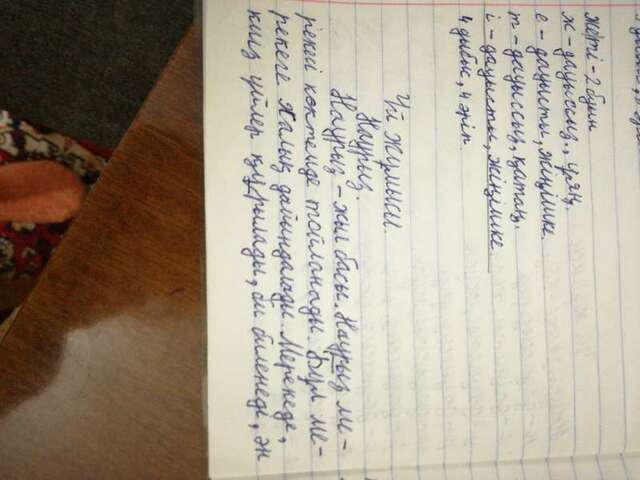 жеті - 2 буын
ж - дауыссыз, ұяң.
е - дауысты, жіңішке.
т - дауыссыз, қатаң.
і - дауысты, жіңішке.
4 дыбыс, 4 әріп.
Үй жұмысы.
Наурыз.
Наурыз - жыл басы. Наурыз ме-
рекесі көктемде тойланады. Бұл ме-
рекеге халық дайындалады. Мерекеде,
киіз үйлер құрылады, би биленеді, ән